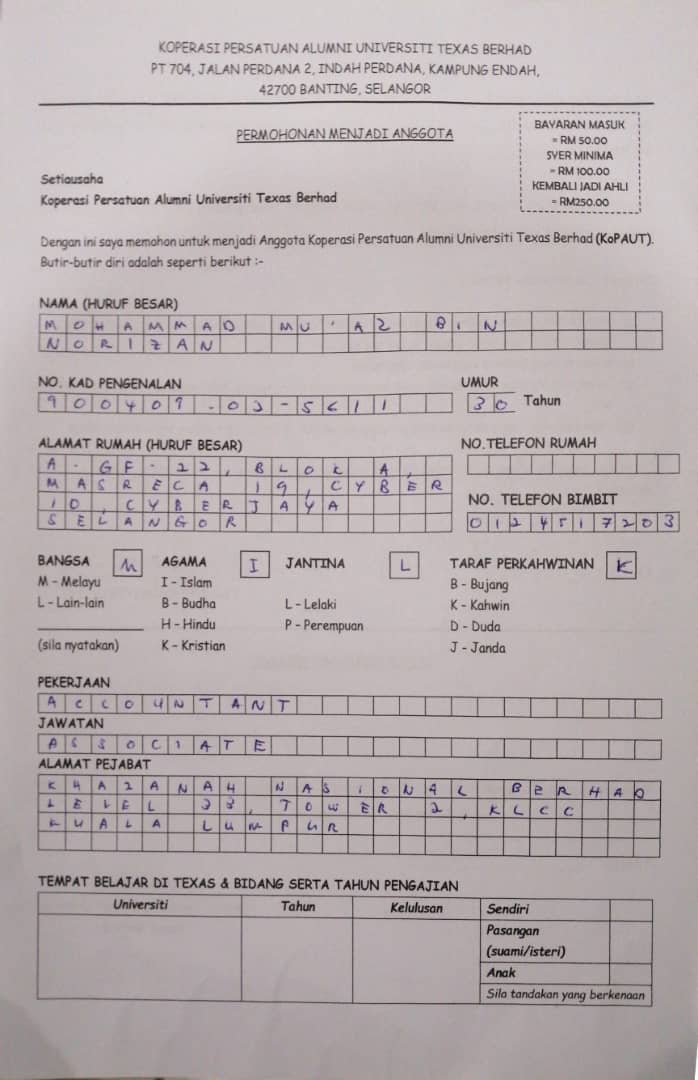 KOPERASI PERSATUAN ALUMNI UNIVERSITI TEXAS BERHAD
PT 704, JALAN PERDANA 2, INDAH PERDANA, KAMPUNG ENDAH,
42700 BANTING, SELANGOR
PERMOHONAN MENJADI ANGGOTA
BAYARAN MASUK
= RM 50.00
SYER MINIMA
= RM 100.00
KEMBALI JADI AHLI
= RM250.00
Setiausaha
Koperasi Persatuan Alumni Universiti Texas Berhad
Dengan ini saya memohon untuk menjadi Anggota Koperasi Persatuan Alumni Universiti Texas Berhad (KoPAUT).
Butir-butir diri adalah seperti berikut :-
NAMA (HURUF BESAR)
MOHAMMAD MU'AZ BIN
NORIZAN
NO. KAD PENGENALAN UMUR
900409-03-5611 30 Tahun
ALAMAT RUMAH (HURUF BESAR) NO.TELEFON RUMAH
A-GF-22, BLOK A,
MASRECA 19, CYBER
10, CYBERJAYA
SELANGOR
NO. TELEFON BIMBIT
0124517203
BANGSA M AGAMA I JANTINA L TARAF PERKAHWINAN K
M - Melayu I - Islam B - Bujang
L - Lain-lain B - Budha L - Lelaki K - Kahwin
H - Hindu P - Perempuan D - Duda
(sila nyatakan) K - Kristian J - Janda
PEKERJAAN
ACCOUNTANT
JAWATAN
ASSOCIATE
ALAMAT PEJABAT
KHAZANAH NASIONAL BERHAD
LEVEL 33, TOWER 2, KLCC
KUALA LUMPUR
TEMPAT BELAJAR DI TEXAS & BIDANG SERTA TAHUN PENGAJIAN
Universiti Tahun Kelulusan Sendiri
Pasangan
(suami/isteri)
Anak
Sila tandakan yang berkenaan